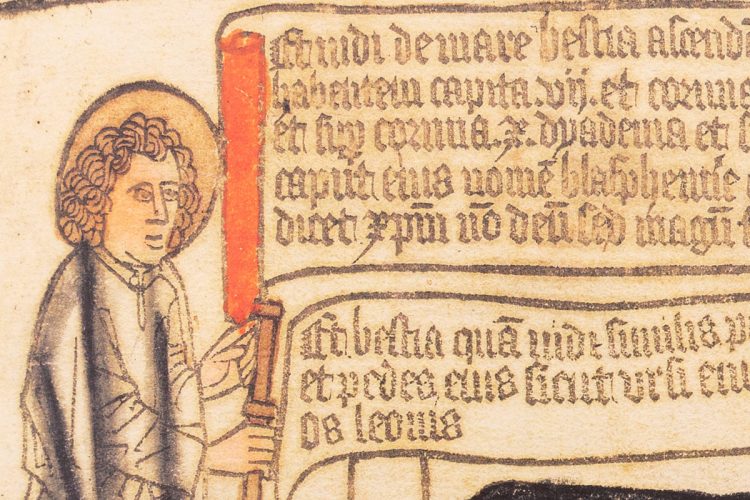 Et uidi de mare bestia ascend
habentem capita .vij. et cornua
et sup cornua .x. dyadema et
caput eius nomē blasphemie
dicet xpm nō deū sed magū
Et bestia quā uidi similis p
et pedes eius sicut vrsi
os leonis